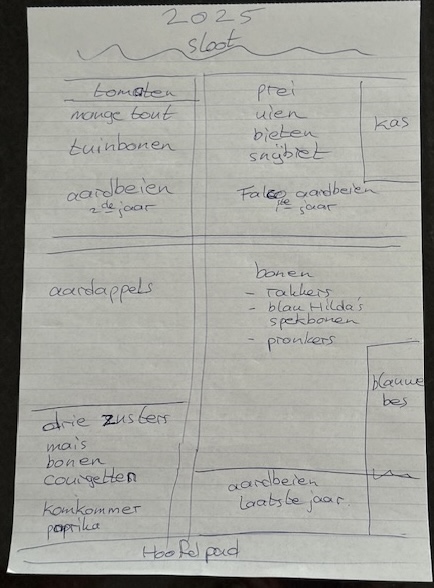 2025
sloot
tomaten
mange tout
tuinbonen
aardbeien
2de jaar
prei
uien
bieten
snijbiet
Falco aardbeien
1ste jaar
kas
aardappels
bonen
- rakkers
- blau Hilda's
spekbonen
- pronkers
blauwe
bes
drie zusters
mais
bonen
courgetten
komkommer
paprika
aardbeien
laatste jaar
Hoofdpad